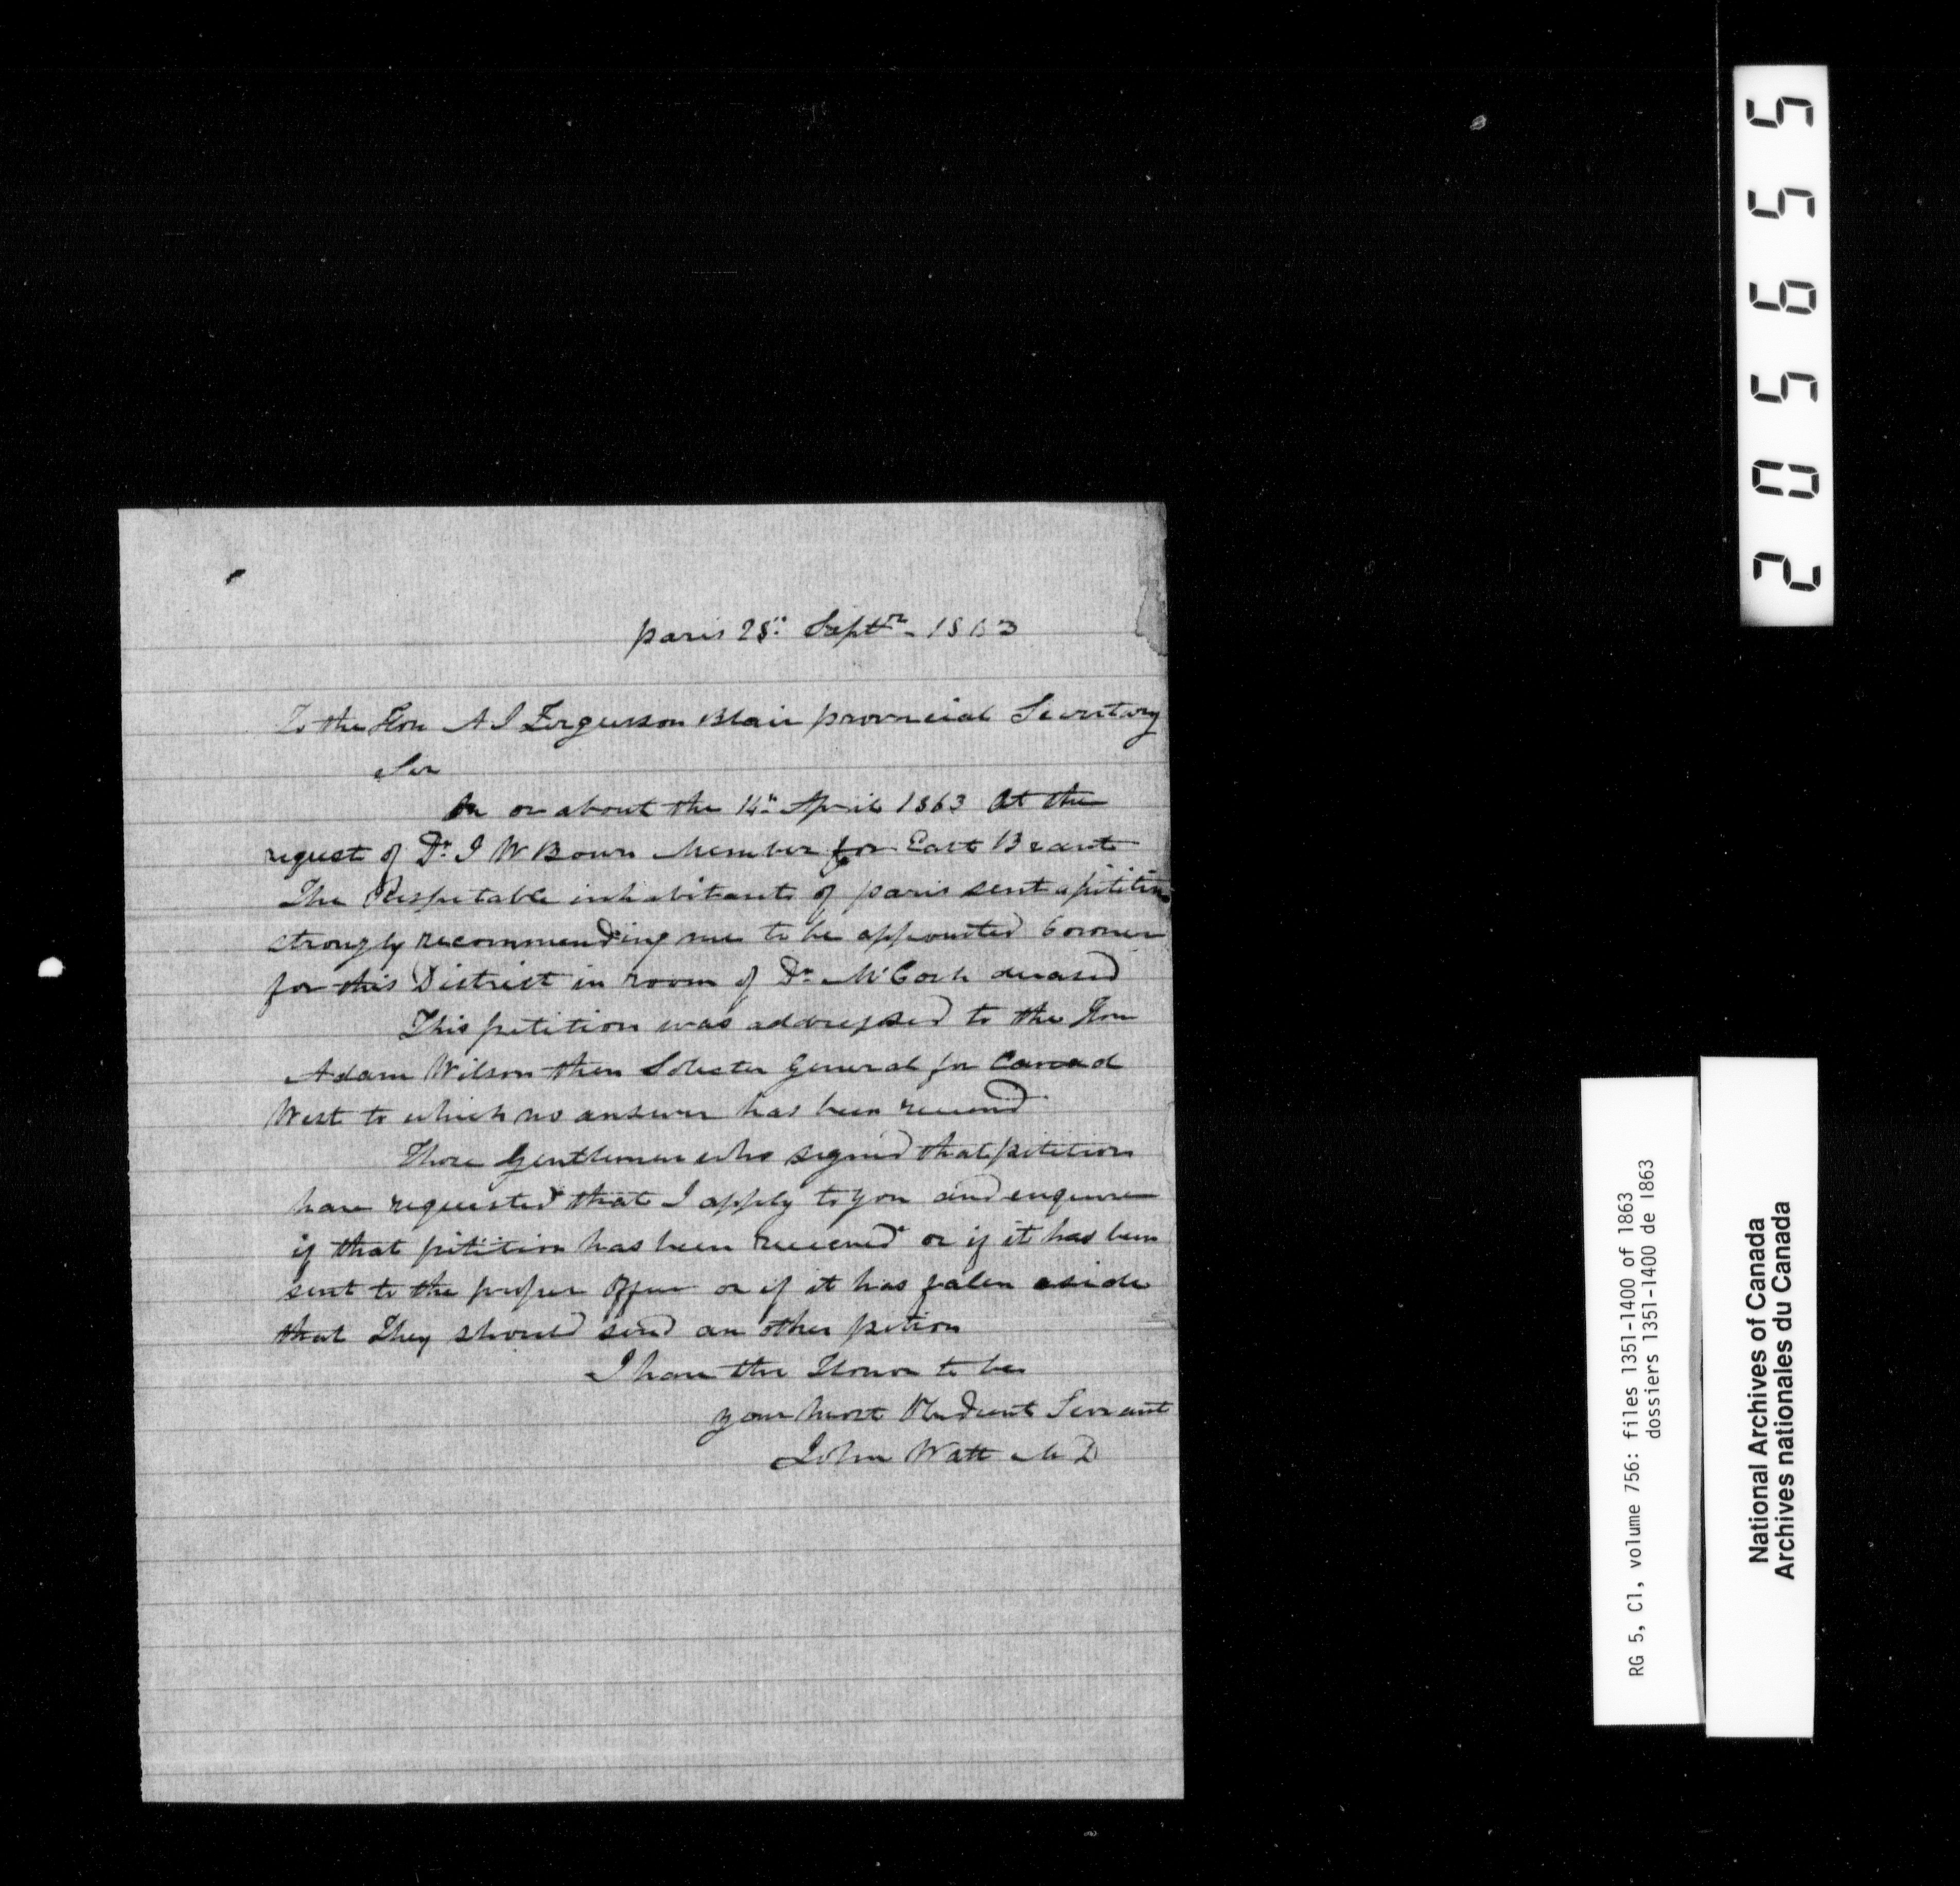 paris 28th Septr - 1863
To the Hon A J Fergusson Blair provincial Secretary
Sir
On or about the 14th April 1863 At the
request of Dr. J W Bown Member for East Brant
The Respetable inhabitants of paris sent a pitition
strongly recommending me to be appointed Coroner
for this District in room of Dr McCosh deceased
This petition was addressed to the Hon
Adam Wilson then Soliceter General for Canad
West to which no answer has been received
Those Gentlemen who signed that petition
have requested that I apply to you and enquire
if that pitition has been received or if it has been
sent to the proper Officer or if it has falen aside
that They should send an other pition
I have the Honor to be
your most Obedient Servant
John Watt M D
205655
RG 5, C1, volume 756: files 1351-1400 of 1863
dossiers 1351-1400 de 1863
National Archives of Canada
Archives nationales du Canada